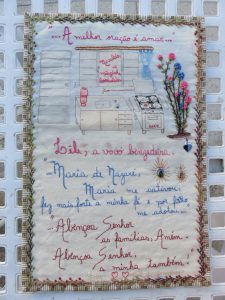 "... A melhor oração é amar...
Lili, a vovó benzedeira.
"Maria de Nazaré,
Maria me cativou,
fez mais forte a minha fé e por filho
me adotou..."
...Abençoa Senhor
as famílias, Amém.
Abençoa Senhor,
a minha também!